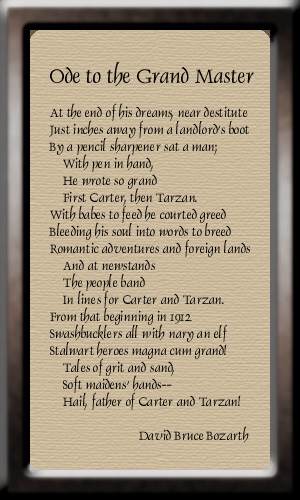 Ode to the Grand Master
At the end of his dreams, near destitute
Just inches away from a landlord's boot
By a pencil sharpener sat a man;
With pen in hand,
He wrote so grand
First Carter, then Tarzan.
With babes to feed he courted greed
Bleeding his soul into words to breed
Romantic adventures and foreign lands
And at newstands
The people band
In lines for Carter and Tarzan.
From that beginning in 1912
Swashbucklers all with nary an elf
Stalwart heroes magna cum grand!
Tales of grit and sand,
Soft maidens' hands--
Hail, father of Carter and Tarzan!
David Bruce Bozarth